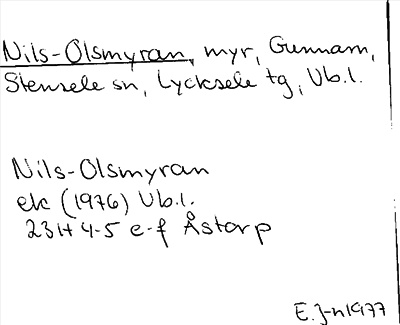 Nils-Olsmyran, myr, Gunnarn,
Stensele sn, Lycksele tg, Vb.l.
Nils-Olsmyran
ek (1976) Vb.l.
23H 4-5 e-f Åstorp
E. J-n 1977